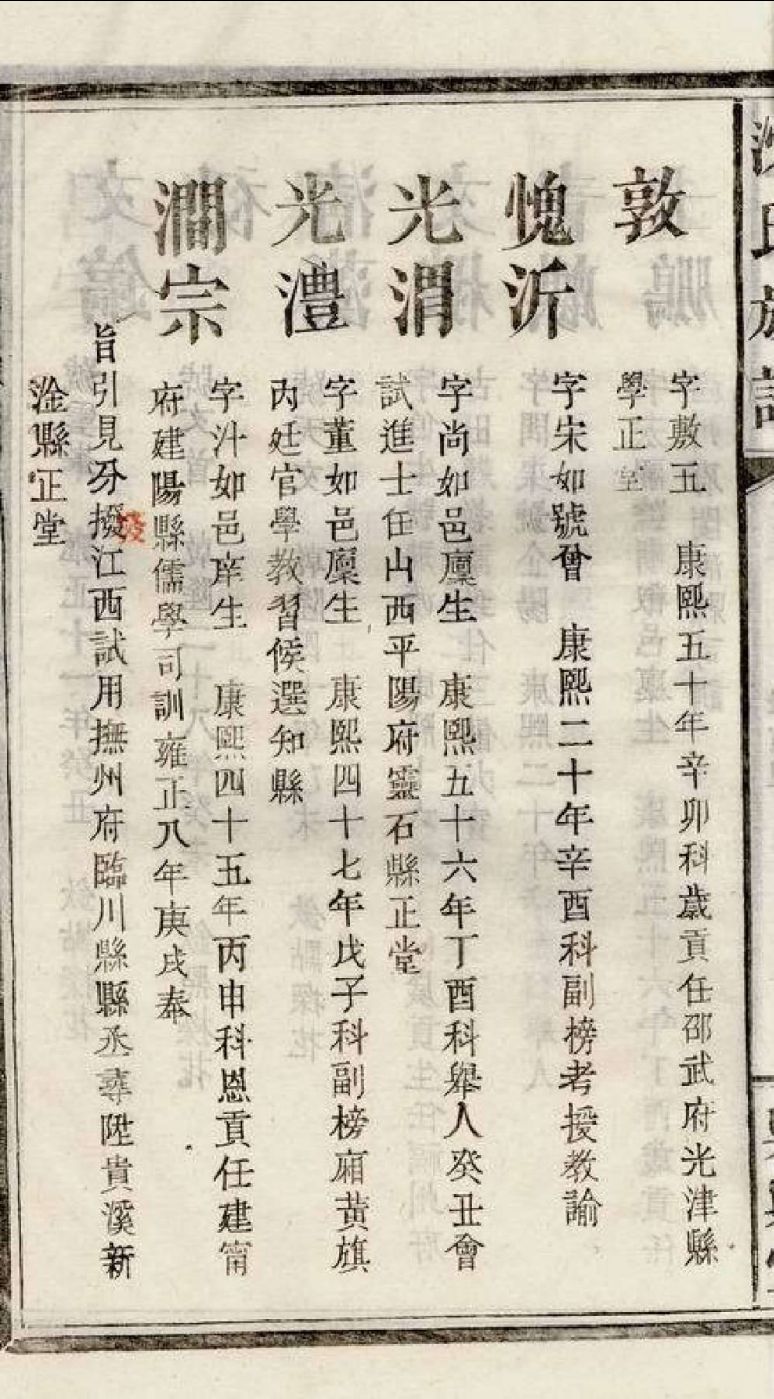 氏
敦
字敷五 康熙五十年辛卯科歲貢任邵武府光津縣
學正堂
愧沂
字宋如號曾 康熙二十年辛酉科副榜考授教諭
光渭
字尚如邑廩生 康熙五十六年丁酉科舉人癸丑會
試進士任山西平陽府靈石縣正堂
光澧
字董如邑廩生 康熙四十七年戊子科副榜廂黃旗
內廷官學教習候選知縣
澗宗
字汁如邑庠生 康熙四十五年丙申科恩貢任建甯
府建陽縣儒學司訓雍正八年庚戌奉
旨引見分撥江西試用撫州府臨川縣縣丞尋陞貴溪新
淦縣正堂